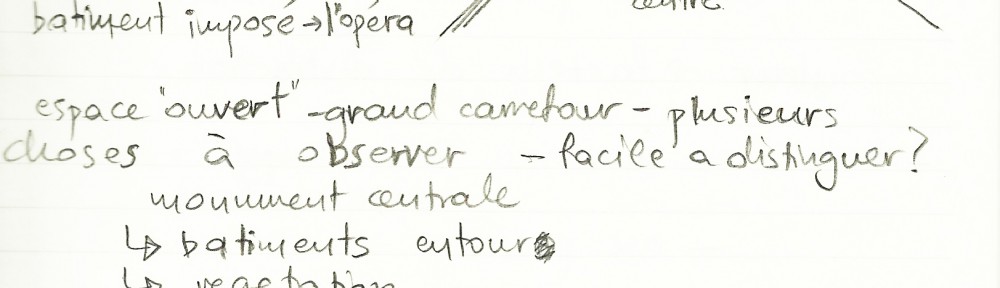 batiment imposé → l'opéra
centre
espace "ouvert" - grand carrefour - plusieurs
choses à observer - facile a distinguer?
monument centrale
↳ batiments entour
↳ vegetation